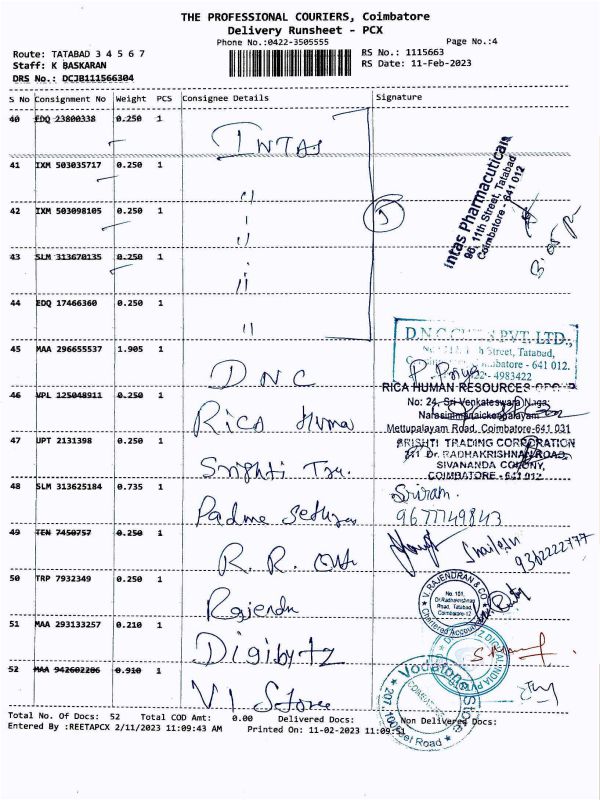 THE PROFESSIONAL COURIERS, Coimbatore
Delivery Runsheet - PCX
Phone No.:0422-3505555 Page No.:4
Route: TATABAD 3 4 5 6 7 RS No.: 1115663
Staff: K BASKARAN RS Date: 11-Feb-2023
DRS No.: DCJB111566304
S No Consignment No Weight PCS Consignee Details Signature
40 EDQ 23800338 0.250 1
INTAS
41 IXM 503035717 0.250 1
Intas Pharmaceuticals
96, 11th Street, Tatabad,
Coimbatore - 641 012
42 IXM 503098105 0.250 1
5
43 SLM 313670135 0.250 1
44 EDQ 17466360 0.250 1
D.N.C. PVT. LTD.,
Street, Tatabad,
- 641 012.
- 4983422
45 MAA 296655537 1.905 1
DNC P. Priya
RICA HUMAN RESOURCES GROUP
46 VPL 125048911 0.250 1
No: 24, Sri Venkateswara Nagar
Narasimmanaickenpalayam
Rica Huma
Mettupalayam Road, Coimbatore-641 031
47 UPT 2131398 0.250 1
SRISHTI TRADING CORPORATION
Dr. RADHAKRISHNAN ROAD,
SIVANANDA COLONY,
COIMBATORE - 641 012
Srishti Tra.
48 SLM 313625184 0.735 1
Sriram.
Padma 9677749843
49 TEN 7450757 0.250 1
R. R. 9362222777
50 TRP 7932349 0.250 1
V. RAJENDRAN & CO
No. 101,
Dr.Radhakrishnan
Road, Tatabad,
Coimbatore-12
Chartered Accountants
Rajendn
51 MAA 293133257 0.210 1
Digibytz
52 MAA 942602206 0.910 1
VI Store
Vodafone Store
Total No. Of Docs: 52 Total COD Amt: 0.00 Delivered Docs: Non Delivered Docs:
Entered By :REETAPCX 2/11/2023 11:09:43 AM Printed On: 11-02-2023 11:09:51